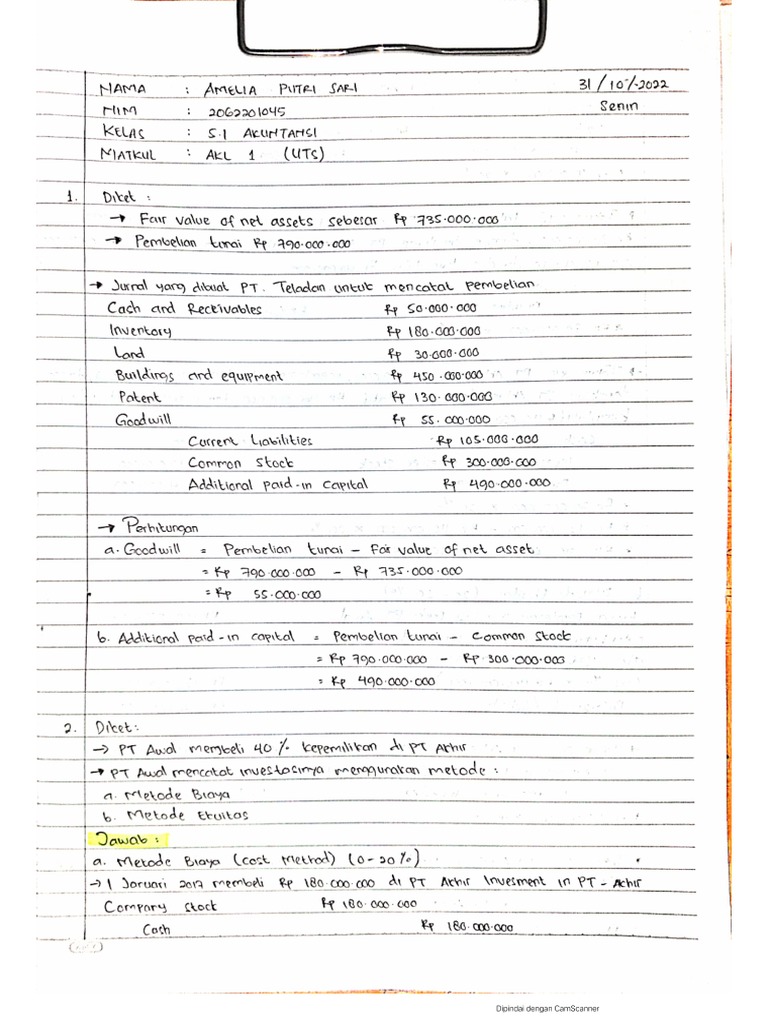 NAMA : AMELIA PUTRI SARI 31/10/2022
NIM : 2062201045 Senin
KELAS : S.1 AKUNTANSI
MATKUL : AKL 1 (UTS)
1. Diket :
→ Fair value of net assets sebesar Rp 735.000.000
→ Pembelian tunai Rp 790.000.000
→ Jurnal yang dibuat PT. Teladan untuk mencatat pembelian
Cash and Receivables Rp 50.000.000
Inventory Rp 180.000.000
Land Rp 30.000.000
Buildings and equipment Rp 450.000.000
Patent Rp 130.000.000
Goodwill Rp 55.000.000
Current Liabilities Rp 105.000.000
Common Stock Rp 300.000.000
Additional paid-in Capital Rp 490.000.000
→ Perhitungan
a. Goodwill = Pembelian tunai - Fair value of net asset
= Rp 790.000.000 - Rp 735.000.000
= Rp 55.000.000
b. Additional paid-in capital = Pembelian tunai - Common Stock
= Rp 790.000.000 - Rp 300.000.000
= Rp 490.000.000
2. Diket:
→ PT Awal membeli 40% kepemilikan di PT Akhir
→ PT Awal mencatat investasinya menggunakan metode :
a. Metode Biaya
b. Metode Ekuitas
Jawab :
a. Metode Biaya (Cost Method) (0-20%)
→ 1 Januari 2017 membeli Rp 180.000.000 di PT Akhir Invesment in PT-Akhir
Company Stock Rp 180.000.000
Cash Rp 180.000.000
Dipindai dengan CamScanner